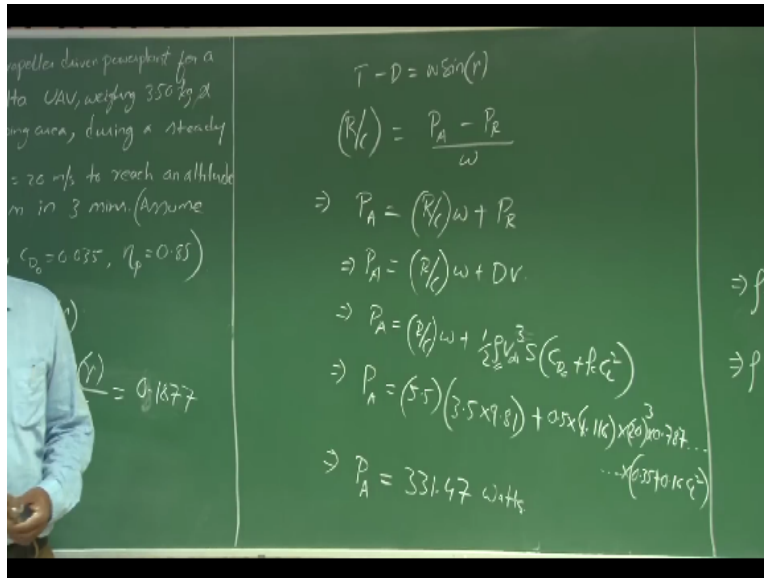 propeller driven powerplant for a
UAV, weighing 350 kg &
wing area, during a steady
= 20 m/s to reach an altitude
m in 3 mins. (Assume
C_{D_0} = 0.035, η_p = 0.85)
= 0.1877
T - D = w sin(γ)
(R/C) = (P_A - P_R) / w
⇒ P_A = (R/C) w + P_R
⇒ P_A = (R/C) w + DV
⇒ P_A = (R/C) w + 1/2 ρ V^3 S (C_{D_0} + k C_L^2)
⇒ P_A = (5.5) (3.5 × 9.81) + 0.5 × (1.116) × (20)^3 × 0.787 ...
... × (0.35 + 0.16 C_L^2)
⇒ P_A = 331.47 watts
⇒ ρ
⇒ ρ